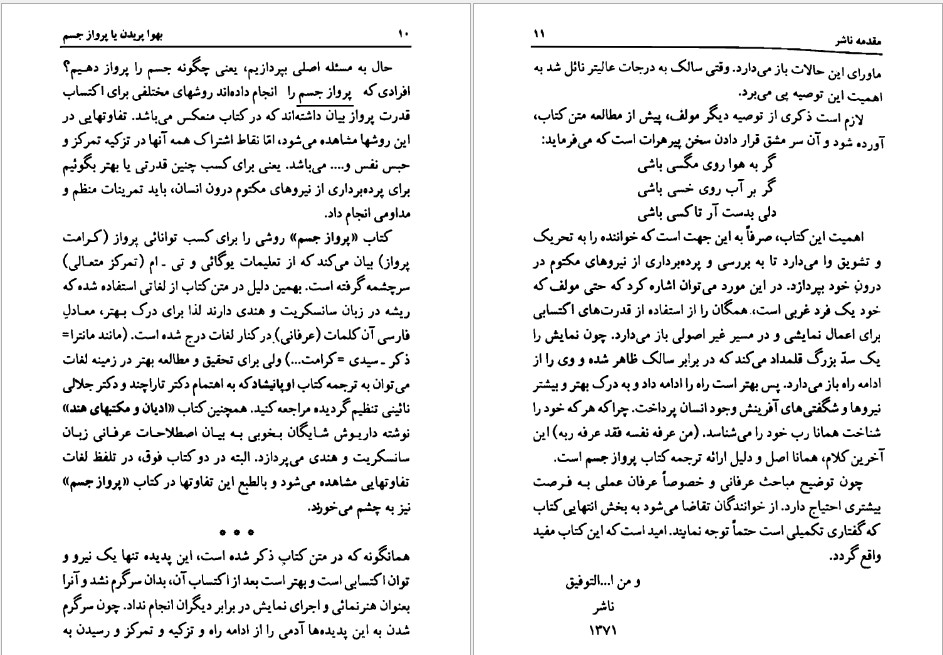 ۱۰
بهوا پریدن یا پرواز جسم
حال به مسئله اصلی بپردازیم، یعنی چگونه جسم را پرواز دهیم؟
افرادی که پرواز جسم را انجام داده‌اند روشهای مختلفی برای اکتساب
قدرت پرواز بیان داشته‌اند که در کتاب منعکس می‌باشد. تفاوتهایی در
این روشها مشاهده می‌شود، امّا نقاط اشتراک همه آنها در تزکیه تمرکز و
حبس نفس و.... می‌باشد. یعنی برای کسب چنین قدرتی یا بهتر بگوئیم
برای پرده‌برداری از نیروهای مکتوم درون انسان، باید تمرینات منظم و
مداومی انجام داد.
کتاب «پرواز جسم» روشی را برای کسب توانائی پرواز (کرامت
پرواز) بیان می‌کند که از تعلیمات یوگائی و تی ـ ام (تمرکز متعالی)
سرچشمه گرفته است. بهمین دلیل در متن کتاب از لغاتی استفاده شده که
ریشه در زبان سانسکریت و هندی دارند لذا برای درک بهتر، معادل
فارسی آن کلمات (عرفانی) در کنار لغات درج شده است. (مانند مانترا=
ذکر ـ سیدی =کرامت...) ولی برای تحقیق و مطالعه بهتر در زمینه لغات
می‌توان به ترجمه کتاب اوپانیشاد که به اهتمام دکتر تاراچند و دکتر جلالی
نائینی تنظیم گردیده مراجعه کنید. همچنین کتاب «ادیان و مکتبهای هند»
نوشته داریوش شایگان بخوبی به بیان اصطلاحات عرفانی زبان
سانسکریت و هندی می‌پردازد. البته در دو کتاب فوق، در تلفظ لغات
تفاوتهایی مشاهده می‌شود و بالطبع این تفاوتها در کتاب «پرواز جسم»
نیز به چشم می‌خورند.
* * *
همانگونه که در متن کتاب ذکر شده است، این پدیده تنها یک نیرو و
توان اکتسابی است و بهتر است بعد از اکتساب آن، بدان سرگرم نشد و آنرا
بعنوان هنرنمائی و اجرای نمایش در برابر دیگران انجام نداد. چون سرگرم
شدن به این پدیده‌ها آدمی را از ادامه راه و تزکیه و تمرکز و رسیدن به
مقدمه ناشر
۱۱
ماورای این حالات باز می‌دارد. وقتی سالک به درجات عالیتر نائل شد به
اهمیت این توصیه پی می‌برد.
لازم است ذکری از توصیه دیگر مولف، پیش از مطالعه متن کتاب،
آورده شود و آن سر مشق قرار دادن سخن پیرهرات است که می‌فرماید:
گر به هوا روی مگسی باشی
گر بر آب روی خسی باشی
دلی بدست آر تا کسی باشی
اهمیت این کتاب، صرفاً به این جهت است که خواننده را به تحریک
و تشویق وا می‌دارد تا به بررسی و پرده‌برداری از نیروهای مکتوم در
درون خود بپردازد. در این مورد می‌توان اشاره کرد که حتی مولف که
خود یک فرد غربی است، همگان را از استفاده از قدرت‌های اکتسابی
برای اعمال نمایشی و در مسیر غیر اصولی باز می‌دارد. چون نمایش را
یک سدّ بزرگ قلمداد می‌کند که در برابر سالک ظاهر شده و وی را از
ادامه راه باز می‌دارد. پس بهتر است راه را ادامه داد و به درک بهتر و بیشتر
نیروها و شگفتی‌های آفرینش وجود انسان پرداخت. چرا که هر که خود را
شناخت همانا رب خود را می‌شناسد. (من عرفه نفسه فقد عرفه ربه) این
آخرین کلام، همانا اصل و دلیل ارائه ترجمه کتاب پرواز جسم است.
چون توضیح مباحث عرفانی و خصوصاً عرفان عملی به فرصت
بیشتری احتیاج دارد. از خوانندگان تقاضا می‌شود به بخش انتهایی کتاب
که گفتاری تکمیلی است حتماً توجه نمایند. امید است که این کتاب مفید
واقع گردد.
و من ا...التوفیق
ناشر
۱۳۷۱